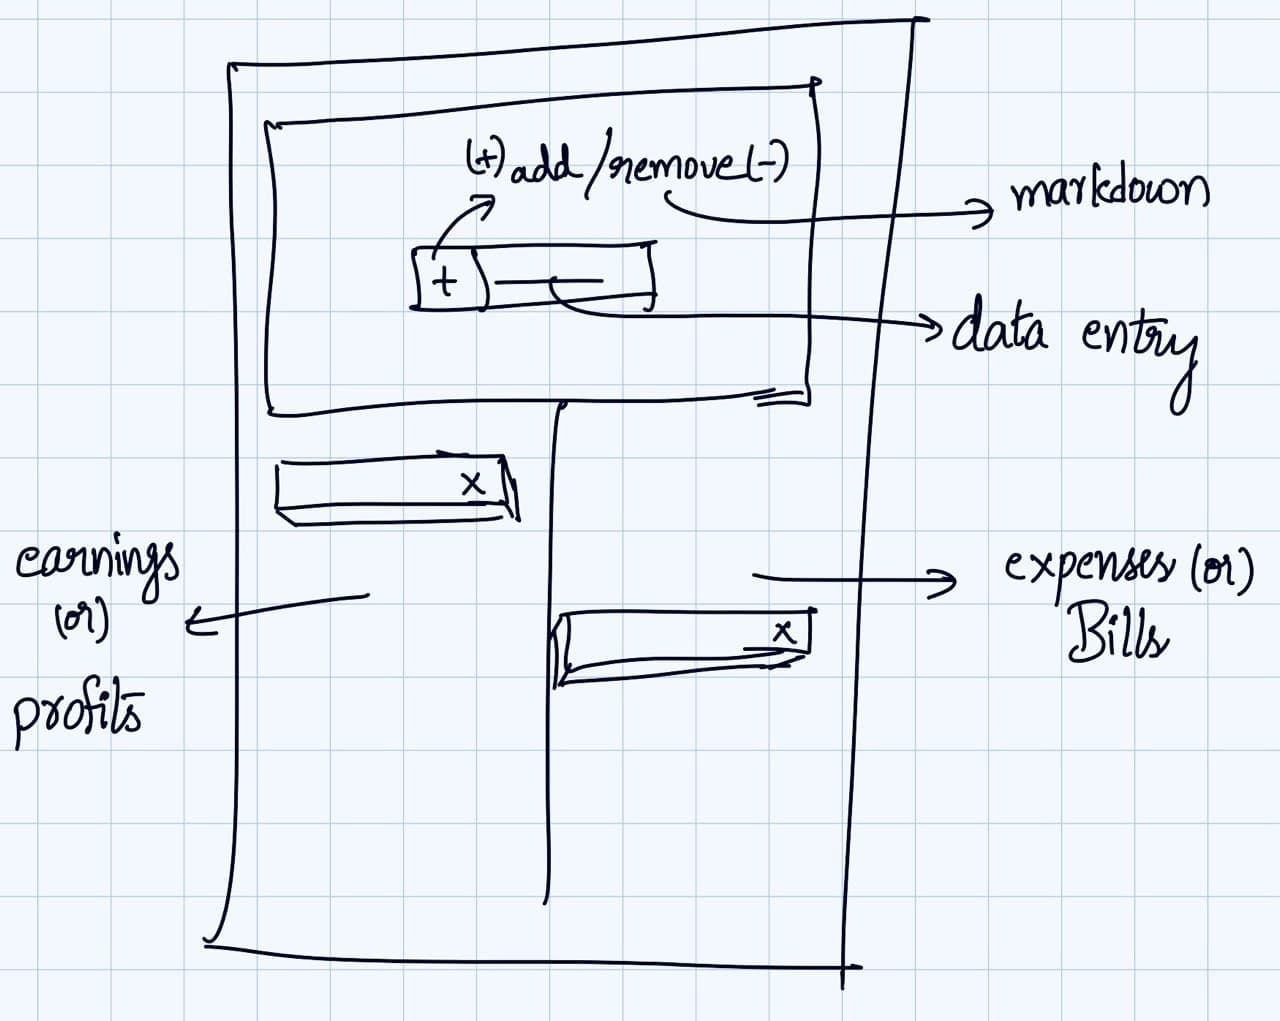 (+) add / remove (-)
markdown
+
data entry
x
earnings
(or)
profits
expenses (or)
Bills
x